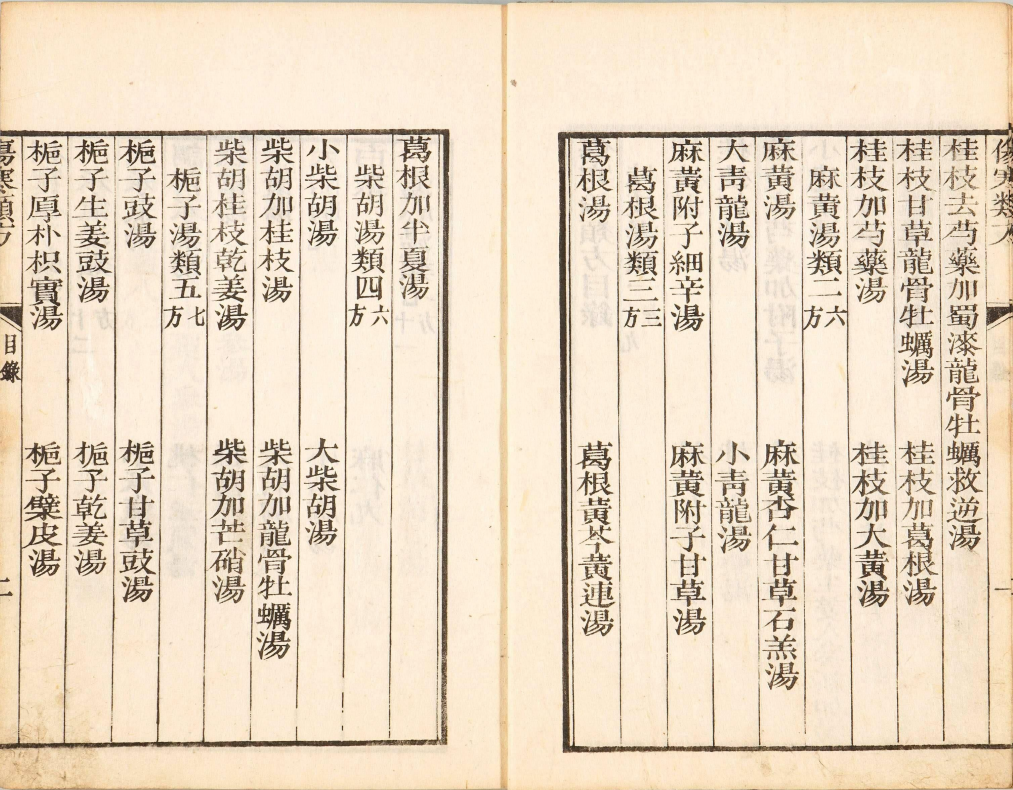 傷寒類方
目錄
一
桂枝去芍藥加蜀漆龍骨牡蠣救逆湯
桂枝甘草龍骨牡蠣湯 桂枝加葛根湯
桂枝加芍藥湯 桂枝加大黃湯
麻黃湯類二六方
麻黃湯 麻黃杏仁甘草石羔湯
大青龍湯 小青龍湯
麻黃附子細辛湯 麻黃附子甘草湯
葛根湯類三三方
葛根湯 葛根黃芩黃連湯
葛根加半夏湯
柴胡湯類四六方
小柴胡湯 大柴胡湯
柴胡加桂枝湯 柴胡加龍骨牡蠣湯
柴胡桂枝乾姜湯 柴胡加芒硝湯
梔子湯類五七方
梔子豉湯 梔子甘草豉湯
梔子生姜豉湯 梔子乾姜湯
梔子厚朴枳實湯 梔子檗皮湯
傷寒類方
目錄
二